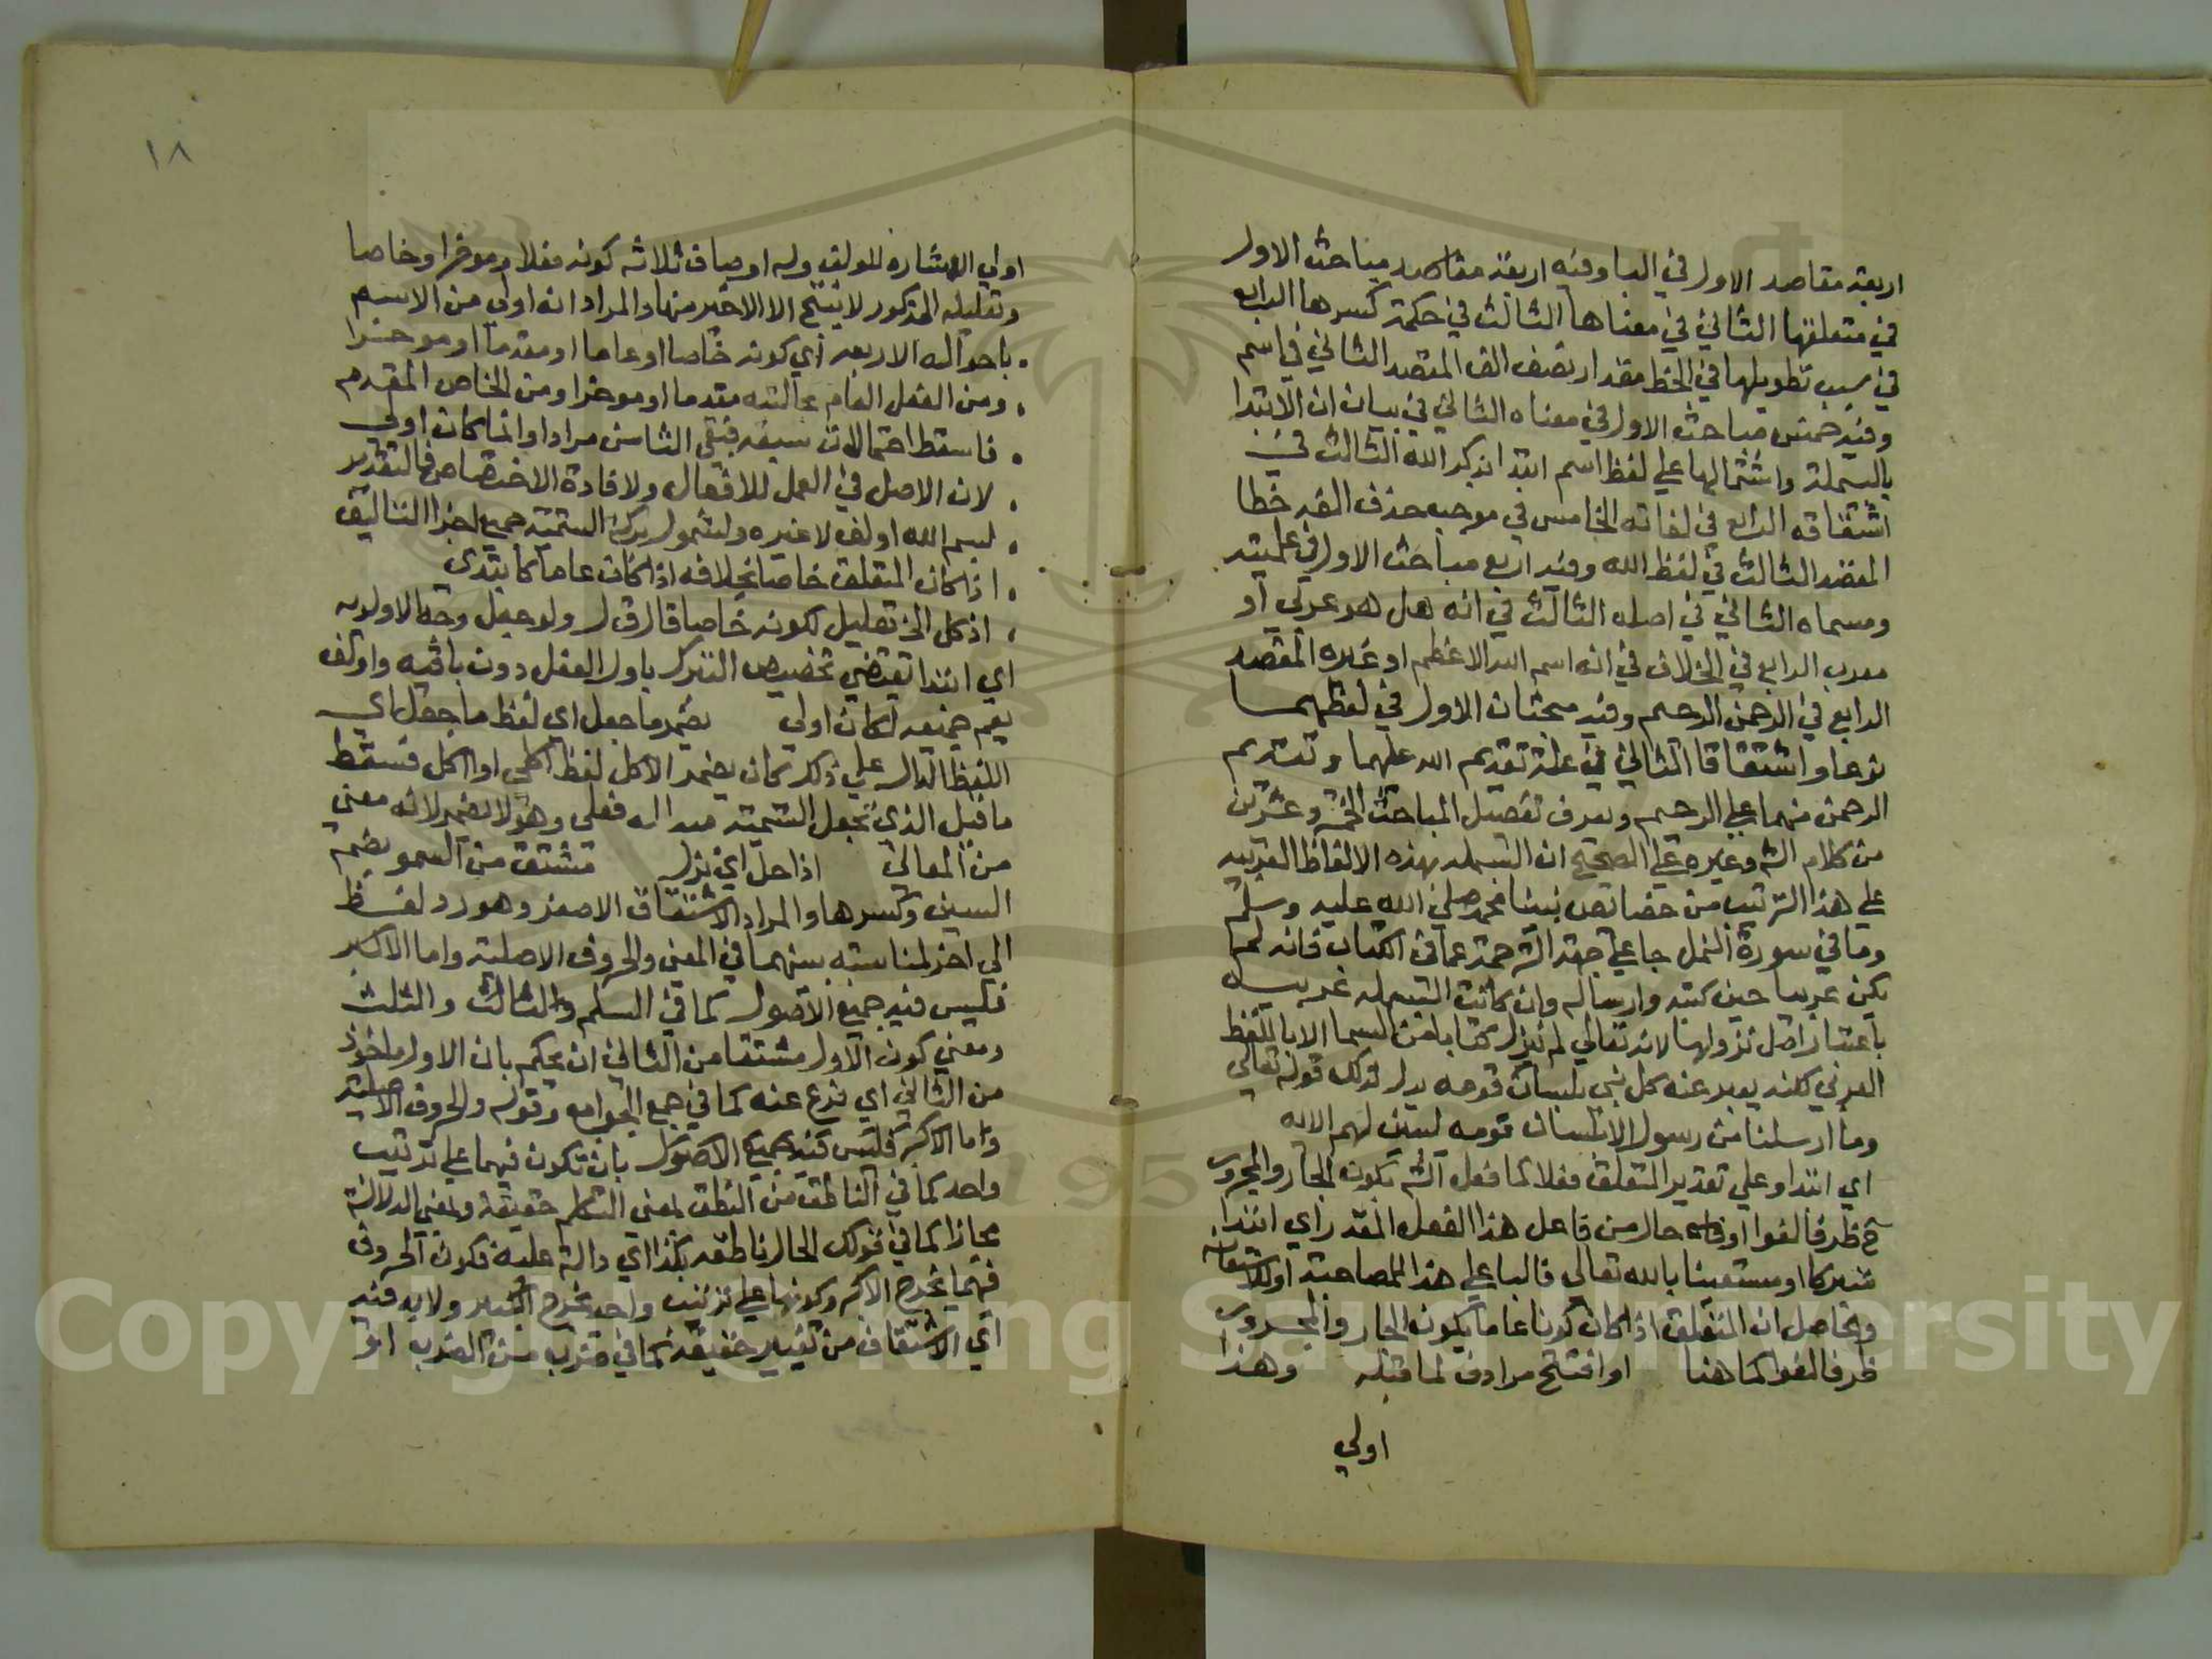 اربعة مقاصد الاول في البا وفيه اربعة مقاصد مباحث الاول
في متعلقها الثاني في معناها الثالث في حكمة كسرها الرابع
في سبب تطويلها في الخط مقدار نصف الف المقصد الثاني في اسم
وفيه خمس مباحث الاول في معناه الثاني في بيان ان الابتدا
بالبسملة واشتمالها علي لفظ اسم ابتدا بذكر الله الثالث في
اشتقاقه الرابع في لغاته الخامس في موجب حذف الفه خطا
المقصد الثالث في لفظ الله وفيه اربع مباحث الاول في علميته
ومسماه الثاني في اصله الثالث في انه هل هو عربي او
معرب الرابع في الخلاف في انه اسم الله الاعظم او غيره المقصد
الرابع في الرحمن الرحيم وفيه مبحثان الاول في لفظهما
نوعا واشتقاقا الثاني في علة تقديم الله عليهما وتقديم
الرحمن منهما علي الرحيم ويعرف تفصيل المباحث الخمسة وعشرين
من كلام الش وغيره علي الصحيح ان البسملة بهذه الالفاظ العربية
علي هذا الترتيب من خصائص نبينا محمد صلي الله عليه وسلم
وما في سورة النمل جا علي جهة الترجمة عما في الكتاب فانه لم
يكن عربيا حين كتبه وارساله وان كانت البسملة عربية
باعتبار اصل نزولها لانه تعالي لم ينزل كتابا من السما الا باللفظ
العربي لكنه يعبر عنه كل نبي بلسان قومه يدل لذلك قوله تعالي
وما ارسلنا من رسول الا بلسان قومه ليبين لهم الاية
اي ابتدا وعلي تقدير المتعلق فعلا كما فعل الش يكون الجار والمجرور
ح ظرفا لغوا او حال من فاعل هذا الفعل المقدر اي ابتدا
متبركا او مستعينا بالله تعالي فالبا علي هذا للمصاحبة او للاستعانة
وحاصل ان المتعلق اذا كان كونا عاما يكون الجار والمجرور
ظرفا لغوا كما هنا او افتتح مرادف لما قبله وهذا
اولي
١٨
اولي الاشارة للمولف وله اوصاف ثلاثة كونه فعلا وموخرا وخاصا
وتعليله المذكور لا ينتج الا الاخير منها والمراد انه اولي من الاسم
باحواله الاربعة اي كونه خاصا او عاما او مقدما او موخرا
ومن الفعل العام بحالتيه مقدما او موخرا ومن الخاص المقدم
فاسقط احتمالات سبعة فبقي الثامن مرادا وانما كان اولي
لان الاصل في العمل للافعال ولافادة الاختصاص فالتقدير
بسم الله اولف لا غيره ولشمول بركة التسمية جميع اجزا التاليف
اذا كان المتعلق خاصا بخلافه اذا كان عاما كابتدي
اذ كل الخ تعليل لكونه خاصا قال ق ل ولو جعل وجه الاولوية
اي ابتدا يقتضي تخصيص التبرك باول الفعل دون باقيه واولف
يعم جميعه لكان اولي يضمر ما جعل اي لفظ ما جعل اي
اللفظ الدال علي ذلك كان يضمر الاكل لفظ اكلي او اكل فسقط
ما قيل الذي تجعل التسمية مبدا له فعلي وهو لا يضمر لانه معني
من المعاني اذا حل اي نزل مشتق من السمو بضم
السين وكسرها والمراد الاشتقاق الاصغر وهو رد لفظ
الي اخر لمناسبة بينهما في المعني والحروف الاصلية واما الاكبر
فليس فيه جميع الاصول كما في السلم والثالث والثلث
ومعني كون الاول مشتقا من الثاني ان يحكم بان الاول ماخوذ
من الثاني اي فرع عنه كما في جمع الجوامع وقوله والحروف الاصلية
واما الاكبر فليس فيه جميع الاصول بان تكون فيهما علي ترتيب
واحد كما في الناطق من النطق بمعني التكلم حقيقة وبمعني الدلالة
مجازا كما في قولك الحال ناطقة بكذا اي دالة عليه فكون الحروف
فيهما يخرج الاكبر وكونها علي ترتيب واحد يخرج الكبير ولا بد فيه
اي الاشتقاق من تغيير حقيقة كما في ضرب من الضرب او
Copyright © King Saud University
195